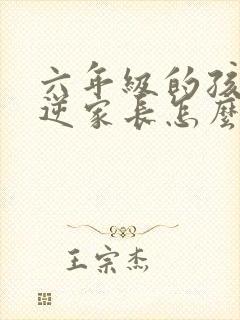 六年级的孩
逆家长怎麼
王宗杰